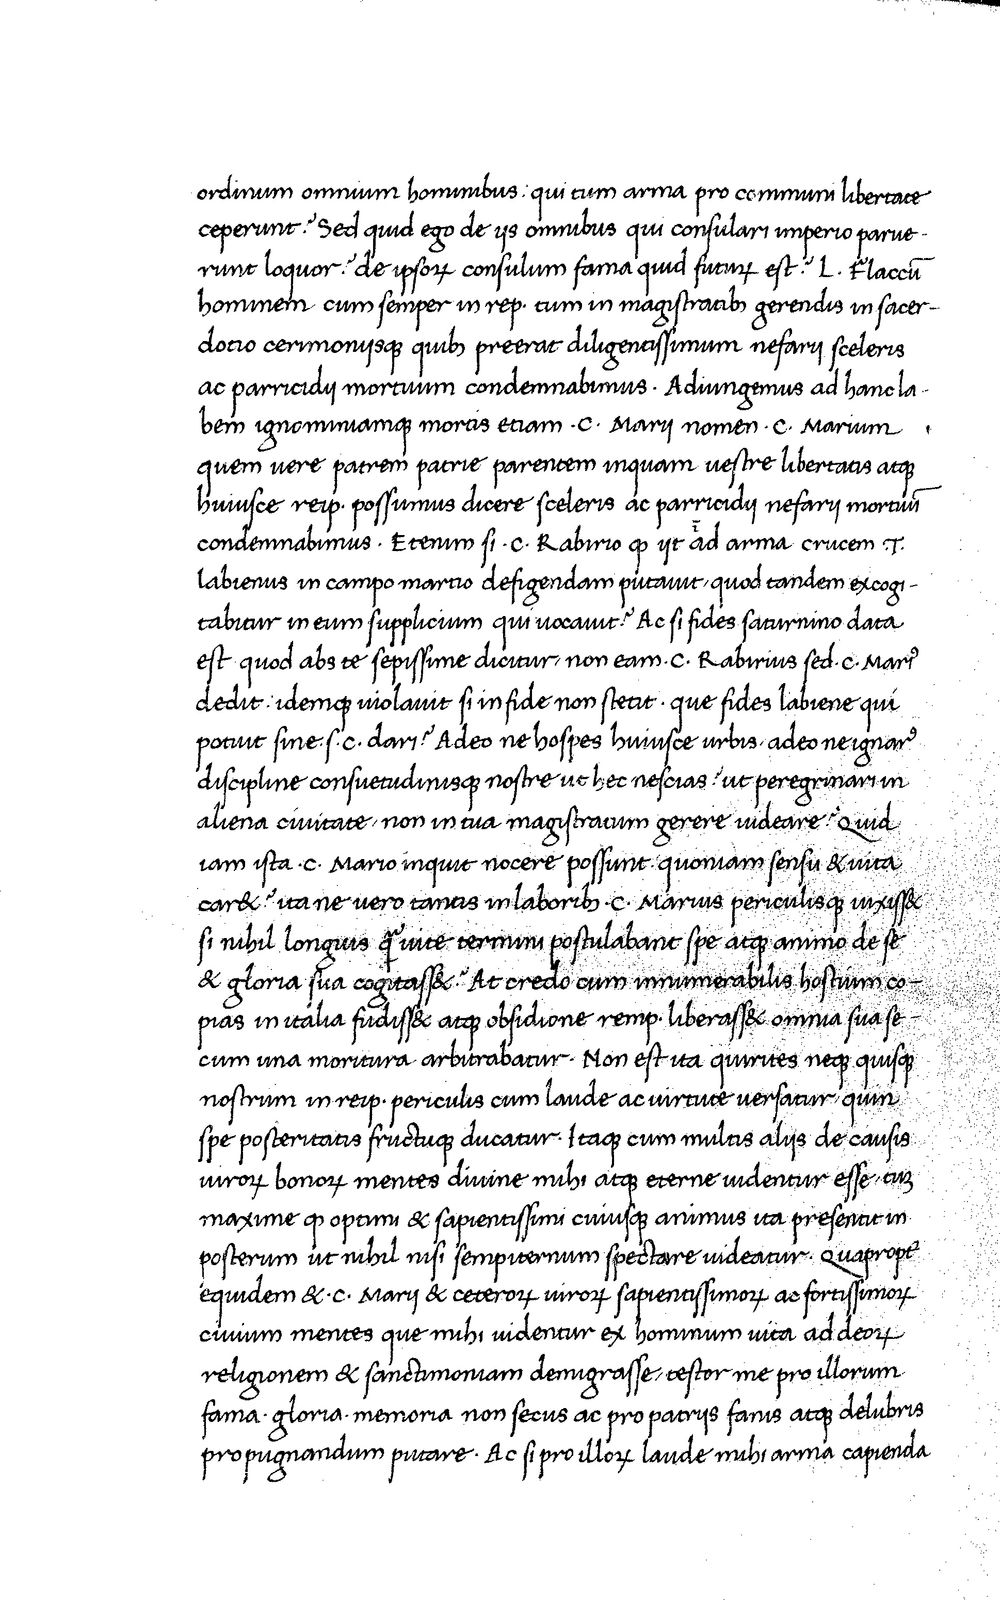 ordinum omnium hominibus: qui tum arma pro communi libertate
ceperunt? Sed quid ego de iis omnibus qui consulari imperio parue-
runt loquor? de ipsoꝝ consulum fama quid futuꝝ est? L. Flaccū
hominem cum semper in rep. tum in magistratibꝫ gerendis in sacer-
dotio cerimoniisqꝫ quibꝫ preerat diligentissimum nefarii sceleris
ac parricidii mortuum condemnabimus. Adiungemus ad hanc la-
bem ignominiamqꝫ mortis etiam .C. Marii nomen .C. Marium
quem uere patrem patrie parentem inquam uestre libertatis atqꝫ
huiusce reip. possumus dicere sceleris ac parricidii nefarii mortuū
condemnabimus. Etenim si .C. Rabirio ꝙ iit ad arma crucem .T.
labienus in campo martio defigendam putauit, quod tandem excogi-
tabitur in eum supplicium qui uocauit? Ac si fides saturnino data
est quod abs te sepissime dicitur, non eam .C. Rabirius sed .C. Mariꝰ
dedit: idemqꝫ uiolauit si in fide non stetit. que fides labiene qui
potuit sine .s.c. dari? Adeo ne hospes huiusce urbis, adeo ne ignarꝰ
discipline consuetudinisqꝫ nostre ut hec nescias? ut peregrinari in
aliena ciuitate, non in tua magistratum gerere uideare? Quid
iam ista .C. Mario inquit nocere possunt quoniam sensu & uita
car&? ita ne uero tantis in laboribꝫ .C. Marius periculisqꝫ uixiss&
si nihil longius ꝙ̄ uite termini postulabant spe atqꝫ animo de se
& gloria sua cogitass&? At credo cum innumerabilis hostium co-
pias in italia fudiss& atqꝫ obsidione remp. liberass& omnia sua se-
cum una moritura arbitrabatur. Non est ita quirites neqꝫ quisqꝫ
nostrum in reip. periculis cum laude ac uirtute uersatur, quin
spe posteritatis fructuqꝫ ducatur. Itaqꝫ cum multis aliis de causis
uiroꝝ bonoꝝ mentes diuine mihi atqꝫ eterne uidentur esse, tuꝫ
maxime ꝙ optimi & sapientissimi cuiusqꝫ animus ita presentit in
posterum ut nihil nisi sempiternum spectare uideatur. Quapropt̄
equidem & .C. Marii & ceteroꝝ uiroꝝ sapientissimoꝝ ac fortissimoꝝ
ciuium mentes que mihi uidentur ex hominum uita ad deoꝝ
religionem & sanctimoniam demigrasse, testor me pro illorum
fama. gloria. memoria non secus ac pro patriis fanis atqꝫ delubris
propugnandum putare. Ac si pro illoꝝ laude mihi arma capienda